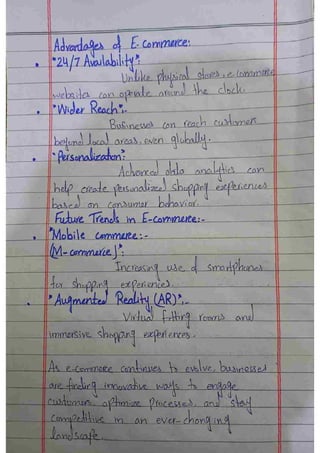 Advantages of E-commerce:
• "24/7 Availability":
Unlike physical stores, e-commerce
websites can operate around the clock.
• "Wider Reach":-
Businesses can reach customers
beyond local areas, even globally.
• "Personalization":
Advanced data analytics can
help create personalized shopping experiences
based on consumer behavior.
Future Trends in E-commerce:-
• "Mobile commerce:-
(M-commerce)":
Increasing use of smartphones
for shopping experiences.
• "Augmented Reality (AR)":-
Virtual fitting rooms and
immersive shopping experiences.
As e-commerce continues to evolve, businesses
are finding innovative ways to engage
customers, optimize processes, and stay
competitive in an ever-changing
landscape.